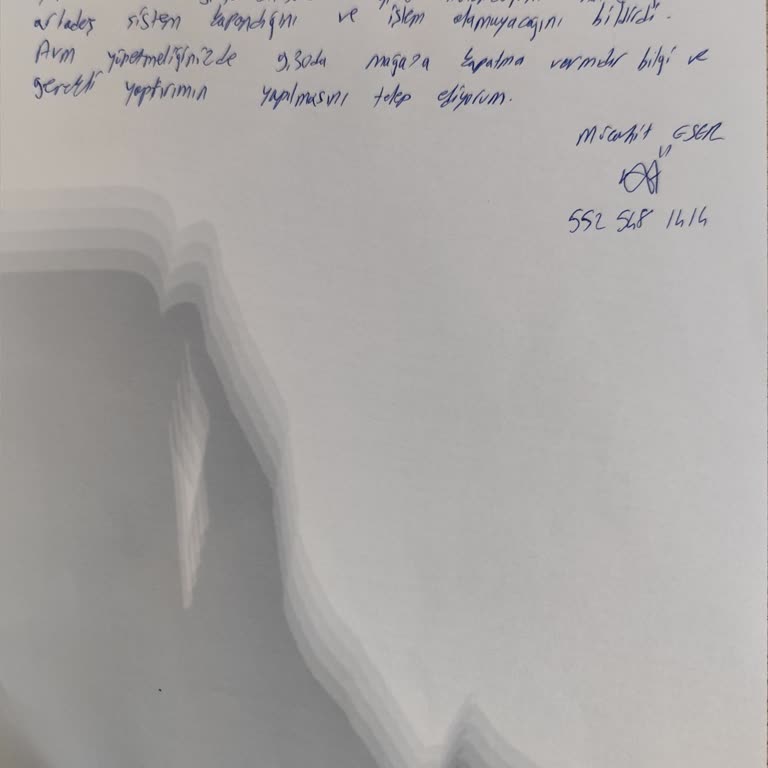 arkadaş sistem kapandığını ve işlem alamuyacağını bildirdi.
Avm yönetmeliğinizde 9.30da mağaza kapatma varmıdır bilgi ve
gerekli yaptırımın yapılmasını talep ediyorum.
Mücahit ESER
552 548 1414